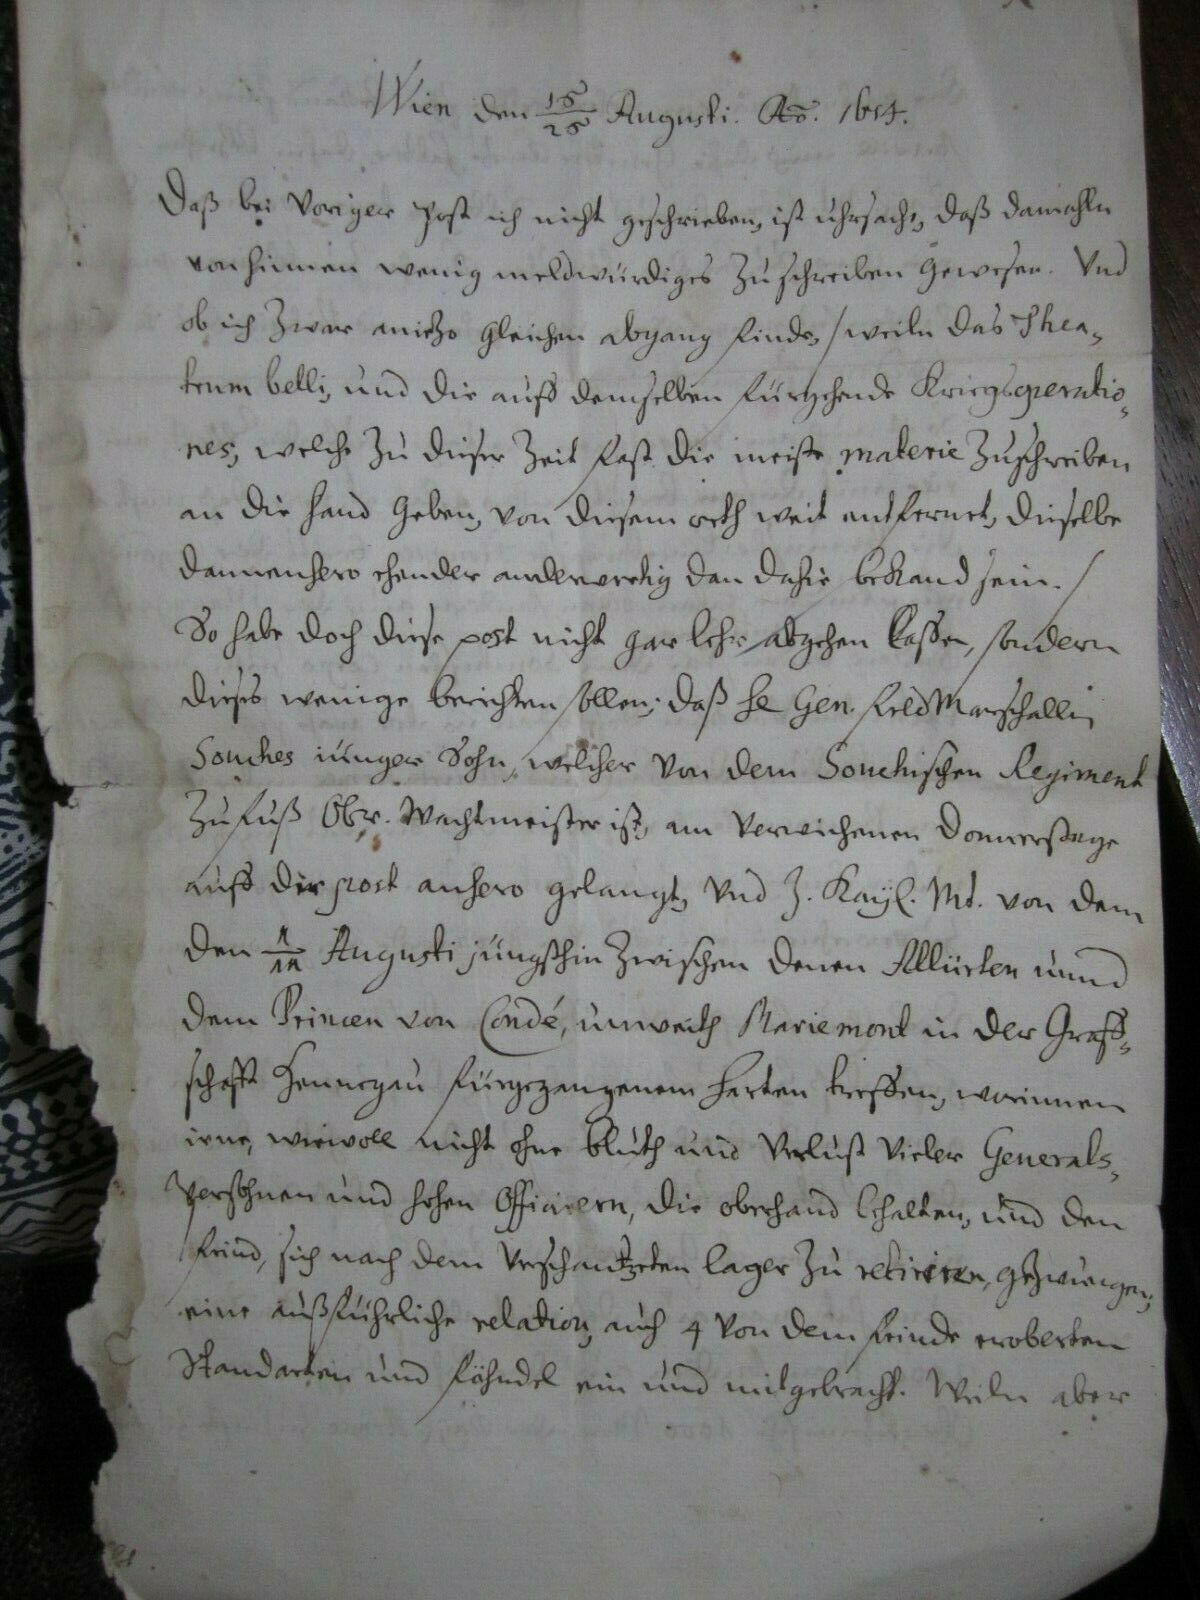 Wien den 15/25 Augusti. Ao. 1674.
Daß bei Voriger Post ich nicht geschrieben, ist uhrsach, daß damahln
von hinnen wenig meldwürdiges zu schreiben gewesen. Vnd
ob ich zwar anietzo gleichen abgang finde, /weiln das Thea-
trum belli, und die auff demselben fürgehende Kriegsoperatio-
nes, welche zu dieser Zeit fast die meiste materie zuschreiben
an die hand geben, von diesem orth weit entfernet, dieselbe
dannenhero ehender anderwertig dan dahie bekand sein./
So habe doch diese post nicht gar lehr abgehen lassen, sondern
dieses wenige berichten sollen; daß he Gen. FeldMarschalln
Souches iünger Sohn, welcher von dem Souchischen Regiment
zufuß Obr. Wachtmeister ist, am Verwichenen Donnerstage
auff der post anhero gelangt, Vnd J. Kayl. Mt. von dem
den 1/11 Augusti jüngsthin zwischen denen Alliirten unnd
dem Princen von Condé, unweith Mariemont in der Graff-
schafft Hennegau fürgegangenem harten treffen, worinnen
iene, wiewoll nicht ohne bluth und Verlust vieler Generals-
Persohnen und hohen Officirern, die oberhand behalten, und den
feind, sich nach dem Verschantzeten lager zu retiriren, gezwungen;
eine außführliche relation, auch 4 Von dem feinde eroberten
Standarten und fähndel ein und mitgebracht. Weiln aber